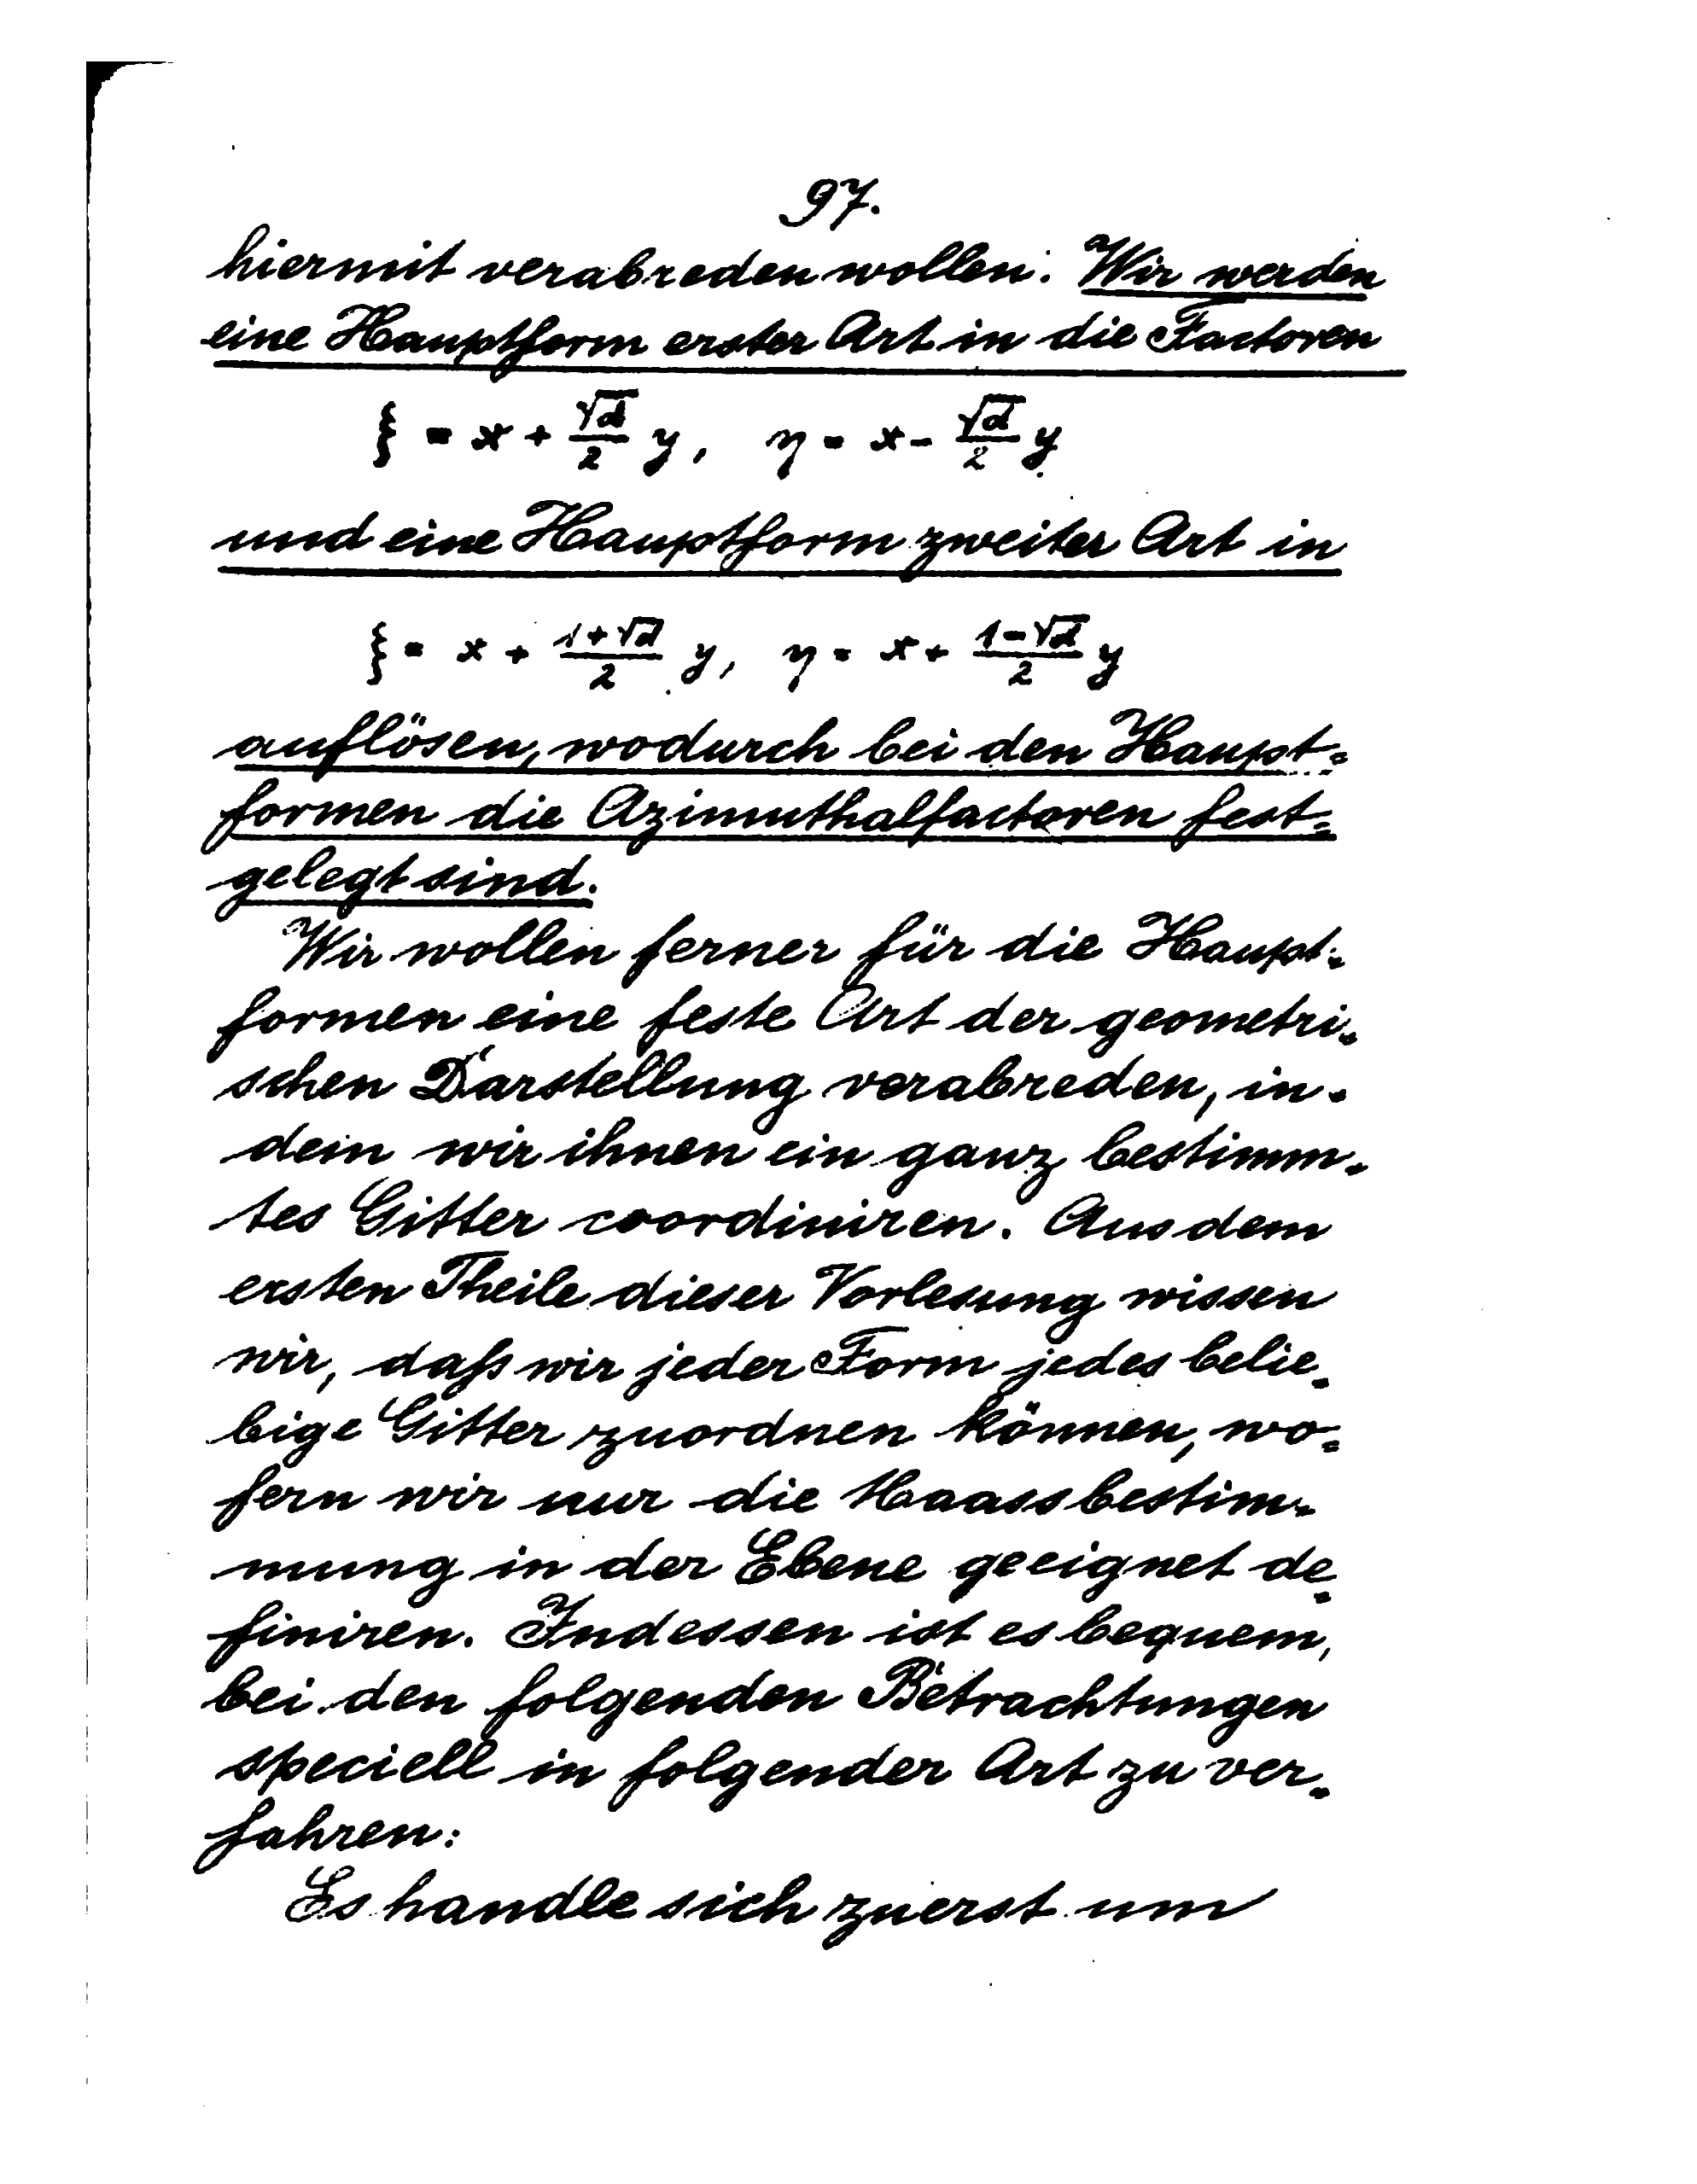 97.
hiermit verabreden wollen: Wir werden
eine Hauptform erster Art in die Factoren
ξ = x + √d/2 y, η = x - √d/2 y
und eine Hauptform zweiter Art in
ξ = x + (1+√d)/2 y, η = x + (1-√d)/2 y
auflösen, wodurch bei den Haupt=
formen die Azimuthalfactoren fest=
gelegt sind.
Wir wollen ferner für die Haupt=
formen eine feste Art der geometri=
schen Darstellung verabreden, in=
dem wir ihnen ein ganz bestimm=
tes Gitter coordiniren. Aus dem
ersten Theile dieser Vorlesung wissen
wir, daß wir jeder Form jedes belie=
bige Gitter zuordnen können, wo=
fern wir nur die Maassbestim=
mung in der Ebene geeignet de=
finiren. Indessen ist es bequem,
bei den folgenden Betrachtungen
speciell in folgender Art zu ver=
fahren:
Es handle sich zuerst um